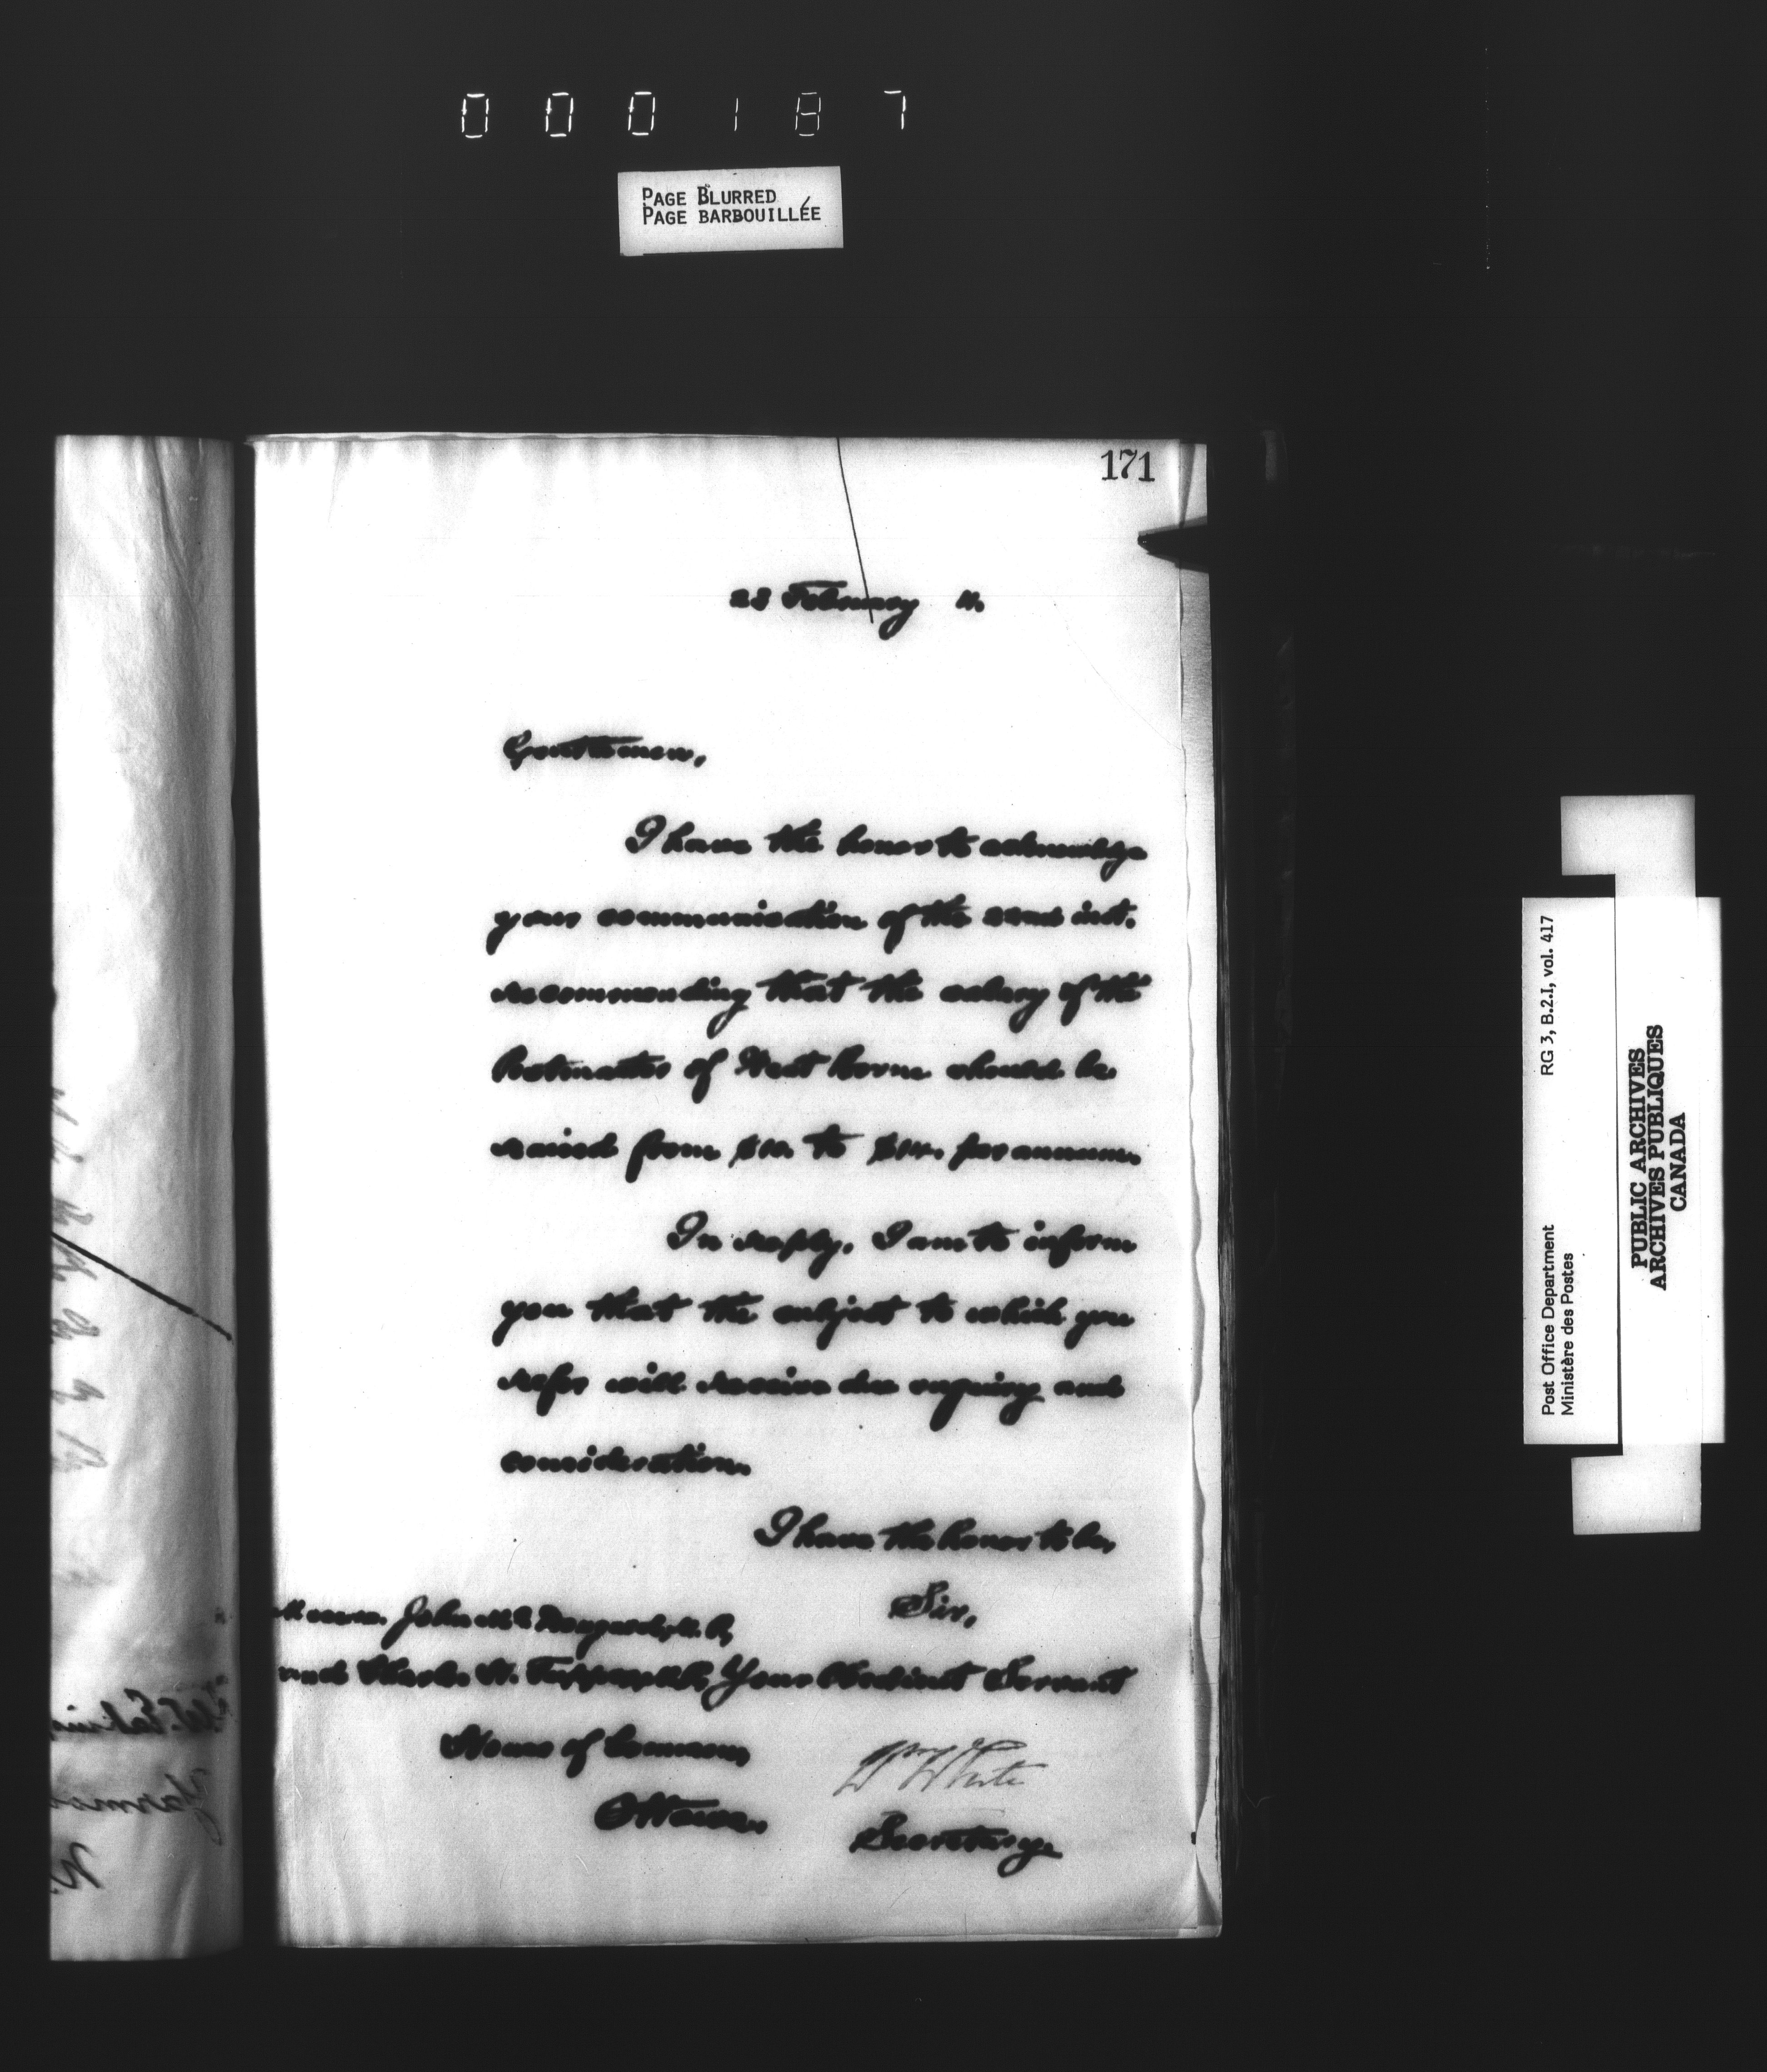 000187
PAGE BLURRED
PAGE BARBOUILLÉE
171
23 February
Gentlemen,
I have the honor to acknowledge
your communication of the 22nd inst.
recommending that the salary of the
Postmaster of West should be
raised from $10. to per annum.
In reply, I am to inform
you that the subject to which you
refer will receive due enquiry and
consideration.
I have the honor to be,
Sir,
Messrs. John Mc Dougald, M. P.,
and Charles H. Tupper, M.P., Your Obedient Servant
House of Commons,
Wm White
Ottawa.
Secretary.
Post Office Department RG 3, B.2.I, vol. 417
Ministère des Postes
PUBLIC ARCHIVES
ARCHIVES PUBLIQUES
CANADA